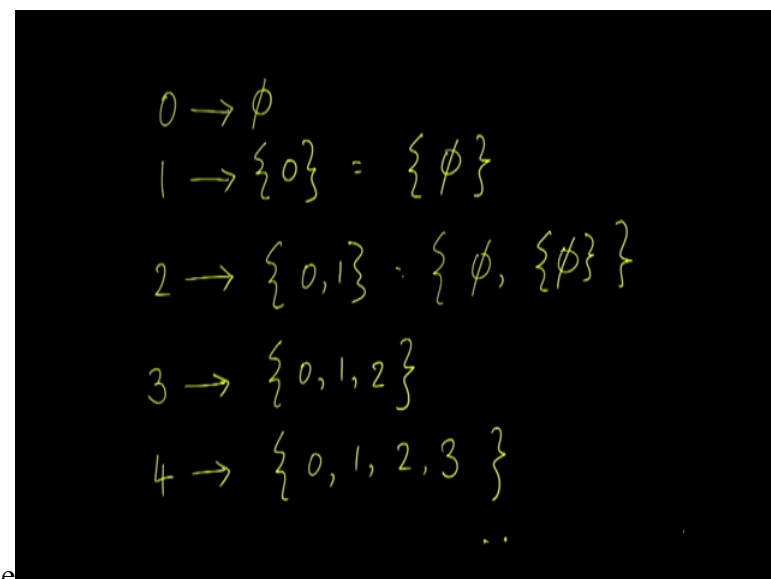 0 → ϕ
1 → {0} = {ϕ}
2 → {0,1} = {ϕ, {ϕ}}
3 → {0,1,2}
4 → {0,1,2,3}
..
e